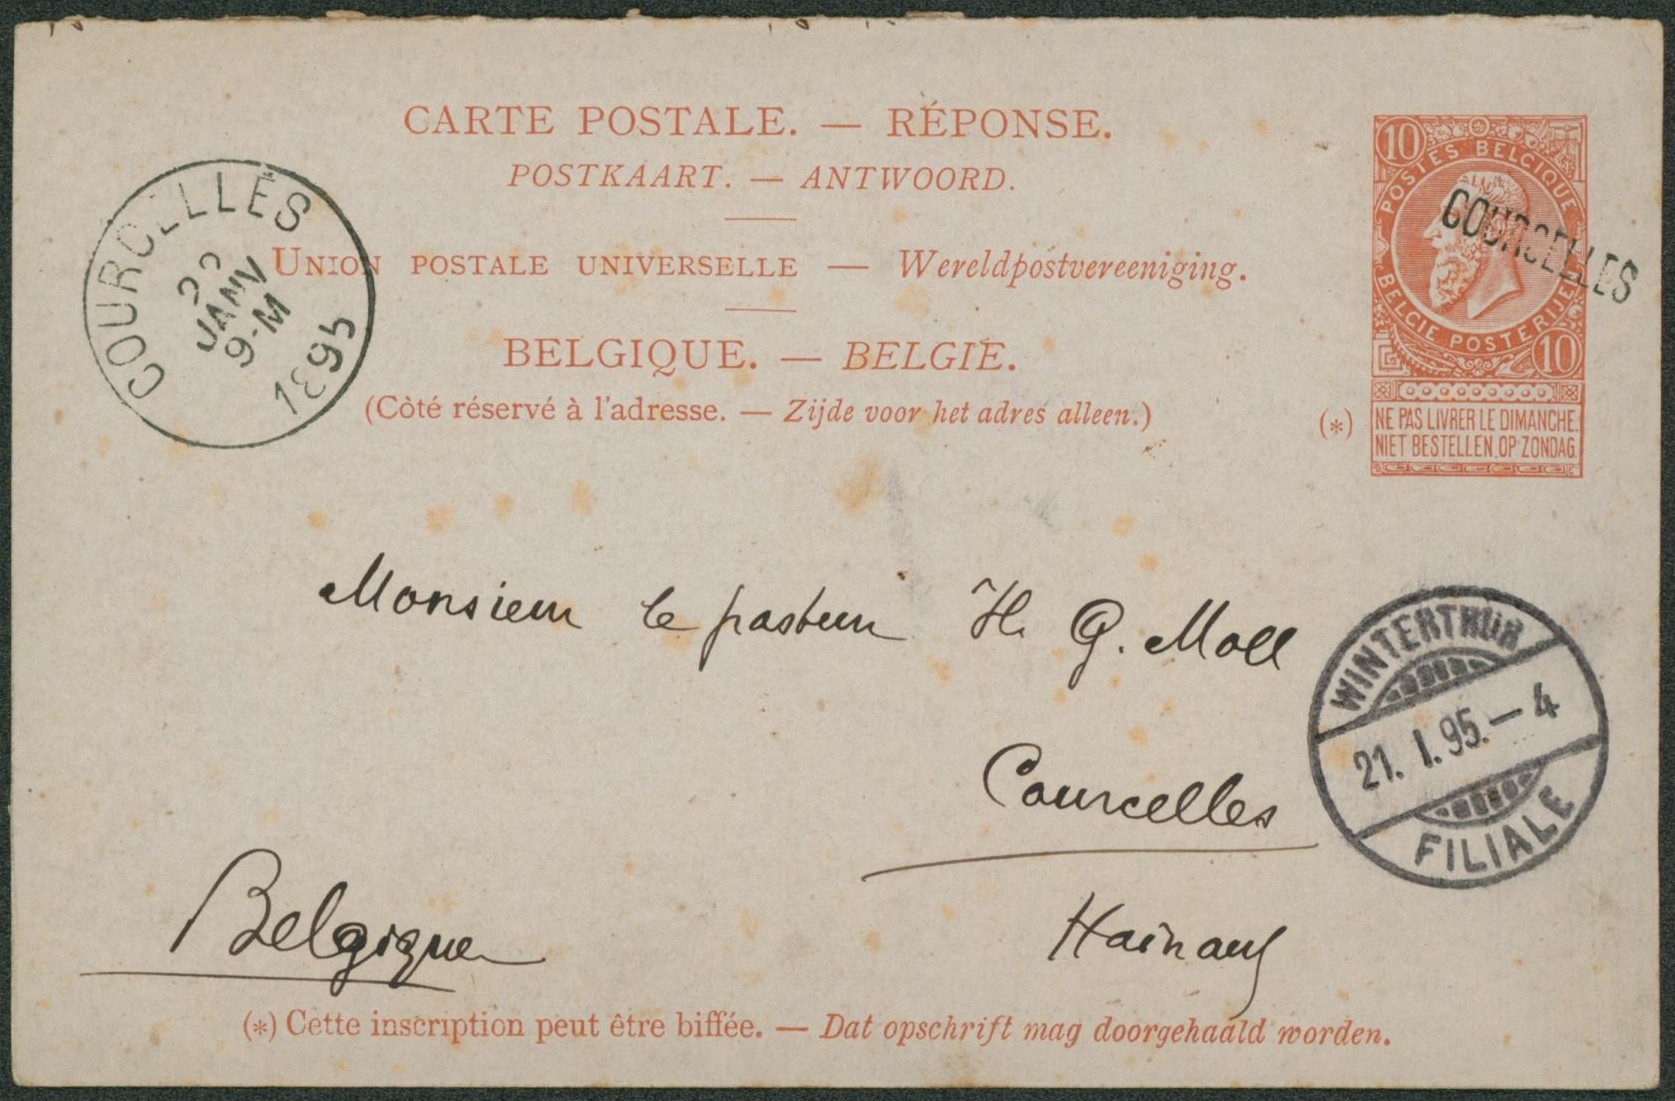 CARTE POSTALE. — RÉPONSE.
POSTKAART. — ANTWOORD.
UNION POSTALE UNIVERSELLE — Wereldpostvereeniging.
BELGIQUE. — BELGIE.
(Côté réservé à l'adresse. — Zijde voor het adres alleen.)
COURCELLES
22
JANV
9-M
1895
10
POSTES BELGIQUE
BELGIE POSTERIJEN
10
COURCELLES
(*)
NE PAS LIVRER LE DIMANCHE.
NIET BESTELLEN OP ZONDAG
Monsieur le pasteur H. G. Moll
Courcelles
Hainaut
Belgique
WINTERTHUR
21. I. 95. — 4
FILIALE
(*) Cette inscription peut être biffée. — Dat opschrift mag doorgehaald worden.